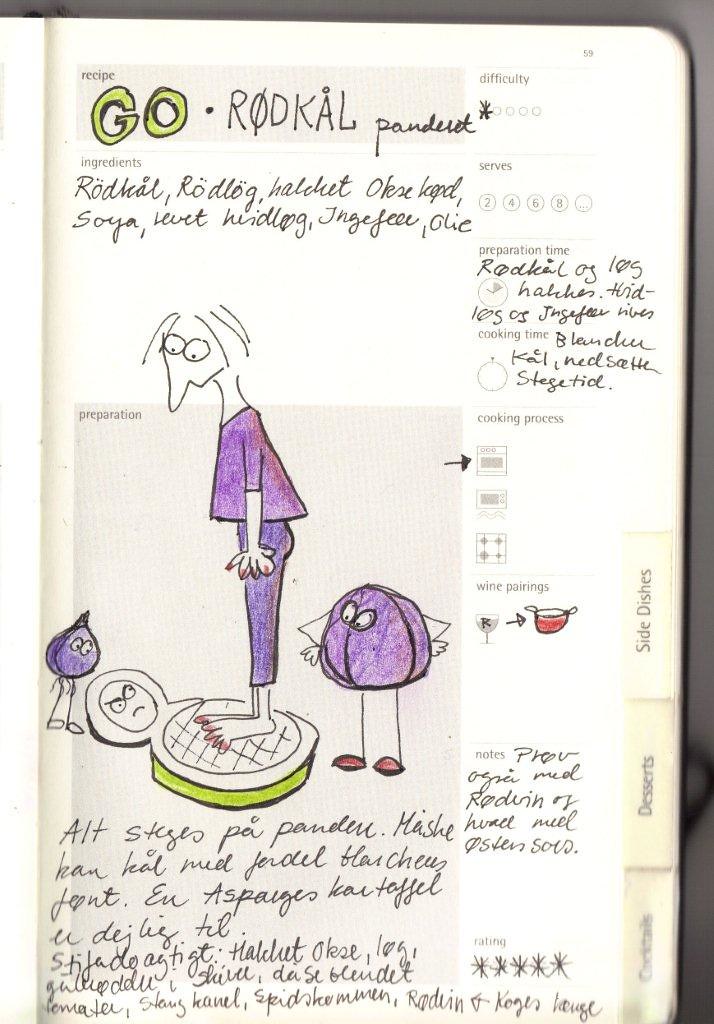 59
recipe
GO • RØDKÅL panderet
difficulty
ingredients
Rödkål, Rödlög, hakket Okse kød,
Soya, revet hvidløg, Ingefær, Olie
serves
2 4 6 8 ...
preparation time
Rødkål og løg
hakkes. Hvid-
løg og Ingefær rives
cooking time Blancher
Kål, nedsætter
Stegetid.
preparation
cooking process
wine pairings
R
Side Dishes
Desserts
Cocktails
notes Prøv
også med
Rødvin og
hvad med
Østers sovs.
Alt steges på panden. Måske
kan kål med fordel blancheres
først. En Asparges kartoffel
er dejlig til.
Stifadoagtigt: Hakket Okse, løg,
gulerødder i skiver, dåse blendet
tomater, Stang kanel, Spidskommen, Rødvin + Koges længe
rating